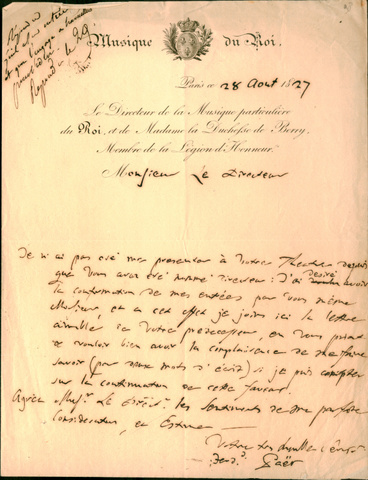 Répondu
qu'il a ses entrées
et que
Répondu le 29
Musique du Roi.
Paris ce 28 Août 1827
Le Directeur de la Musique particulière
du Roi, et de Madame la Duchesse de Berry,
Membre de la Légion d'Honneur.
Monsieur Le Directeur
Je n'ai pas osé me presenter à Votre Theatre depuis
que Vous avez été nommé Directeur: J'ai désiré avoir
la confirmation de mes entrées par vous même
Monsieur, et a cet effet je joins ici la lettre
aimable de Votre predecesseur, en Vous priant
de vouloir bien avoir la complaisance de me faire
savoir (par deux mots d'écrit) si je puis compter
sur la continuation de cette faveur.
Agréez Le Direct. les sentiments de ma parfaite
Consideration, et Estime —
Votre tres humble
Ferd. Paër